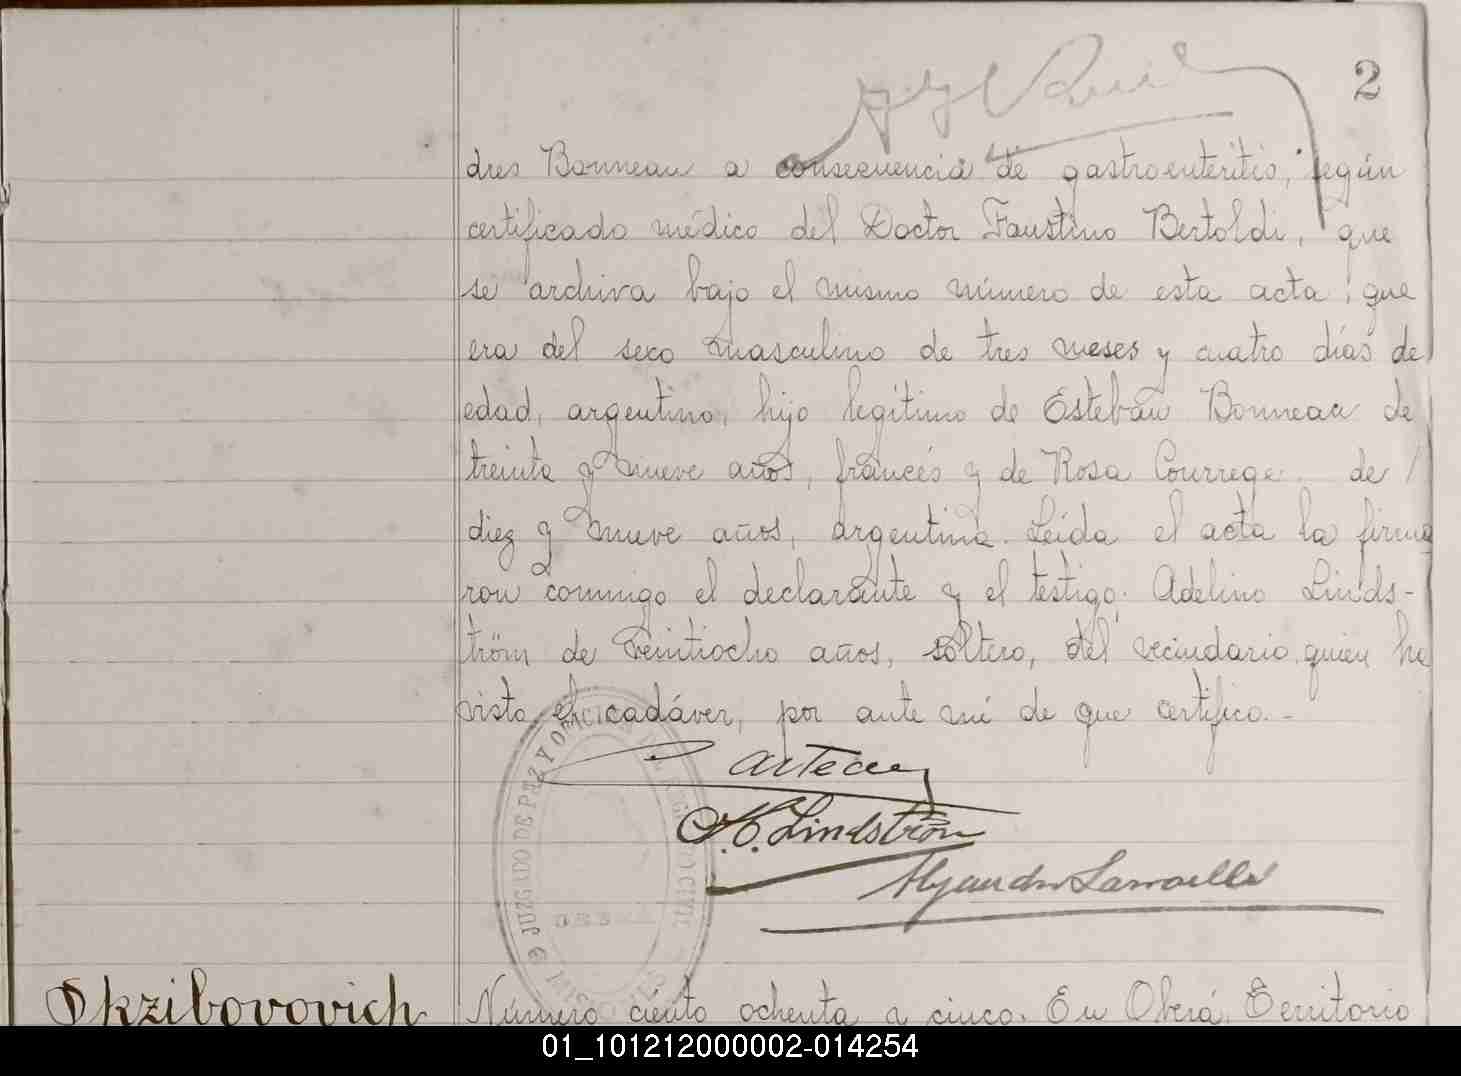 2
dres Bonneau a consecuencia de gastroenteritis, según
certificado médico del Doctor Faustino Bertoldi, que
se archiva bajo el mismo número de esta acta; que
era del sexo masculino de tres meses y cuatro días de
edad, argentino, hijo legítimo de Esteban Bonneau de
treinta y nueve años, francés y de Rosa Courrege de
diez y nueve años, argentina. Leída el acta la firma
ron conmigo el declarante y el testigo. Adelino Linds-
tröm de veintiocho años, soltero, del vecindario, quien ha
visto el cadáver, por ante mí de que certifico.-
Lindström
Alejandro
JUZGADO DE PAZ Y OFICINA DEL REGISTRO CIVIL
MISIONES
Skzibovovich
Número ciento ochenta y cinco. En Oberá, Territorio
01_101212000002-014254